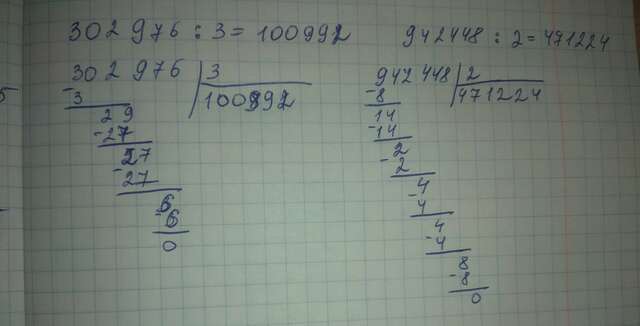 302 976 : 3 = 100992
942448 : 2 = 471224
302 976 | 3
-3 | 100992
29
-27
27
-27
6
-6
0
942 448 | 2
-8 | 471224
14
-14
2
-2
4
-4
4
-4
8
-8
0